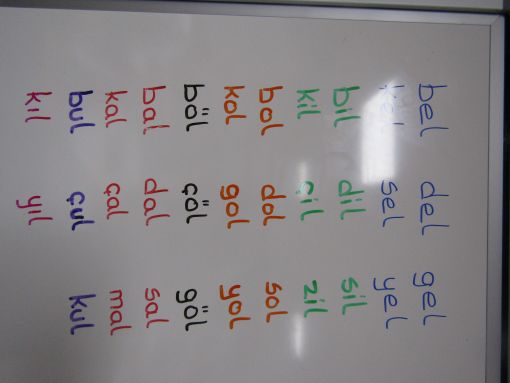 bel del gel
kel sel yel
bil dil sil
kil çil zil
bol dol sol
kol gol yol
böl çöl göl
bal dal sal
kal çal mal
bul çul kul
kıl yıl